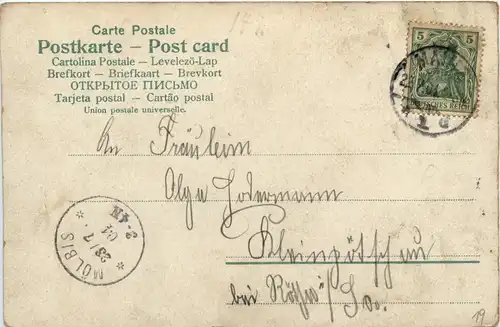 Carte Postale
Postkarte – Post card
Cartolina Postale — Levelezö-Lap
Brefkort - Briefkaart - Brevkort
ОТКРЫТОЕ ПИСЬМО
Tarjeta postal - Cartão postal
Union postale universelle.
5 5
DEUTSCHES REICH
An Fräulein
Olga Hodermann
Kleinpötschau
bei
MÖLBIS
23/7
19